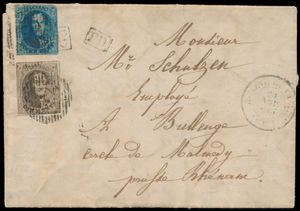 Monsieur
Mr Schutzen
Employé
A Bullenge
cercle de Malmedy
prusse Rhénane
PD